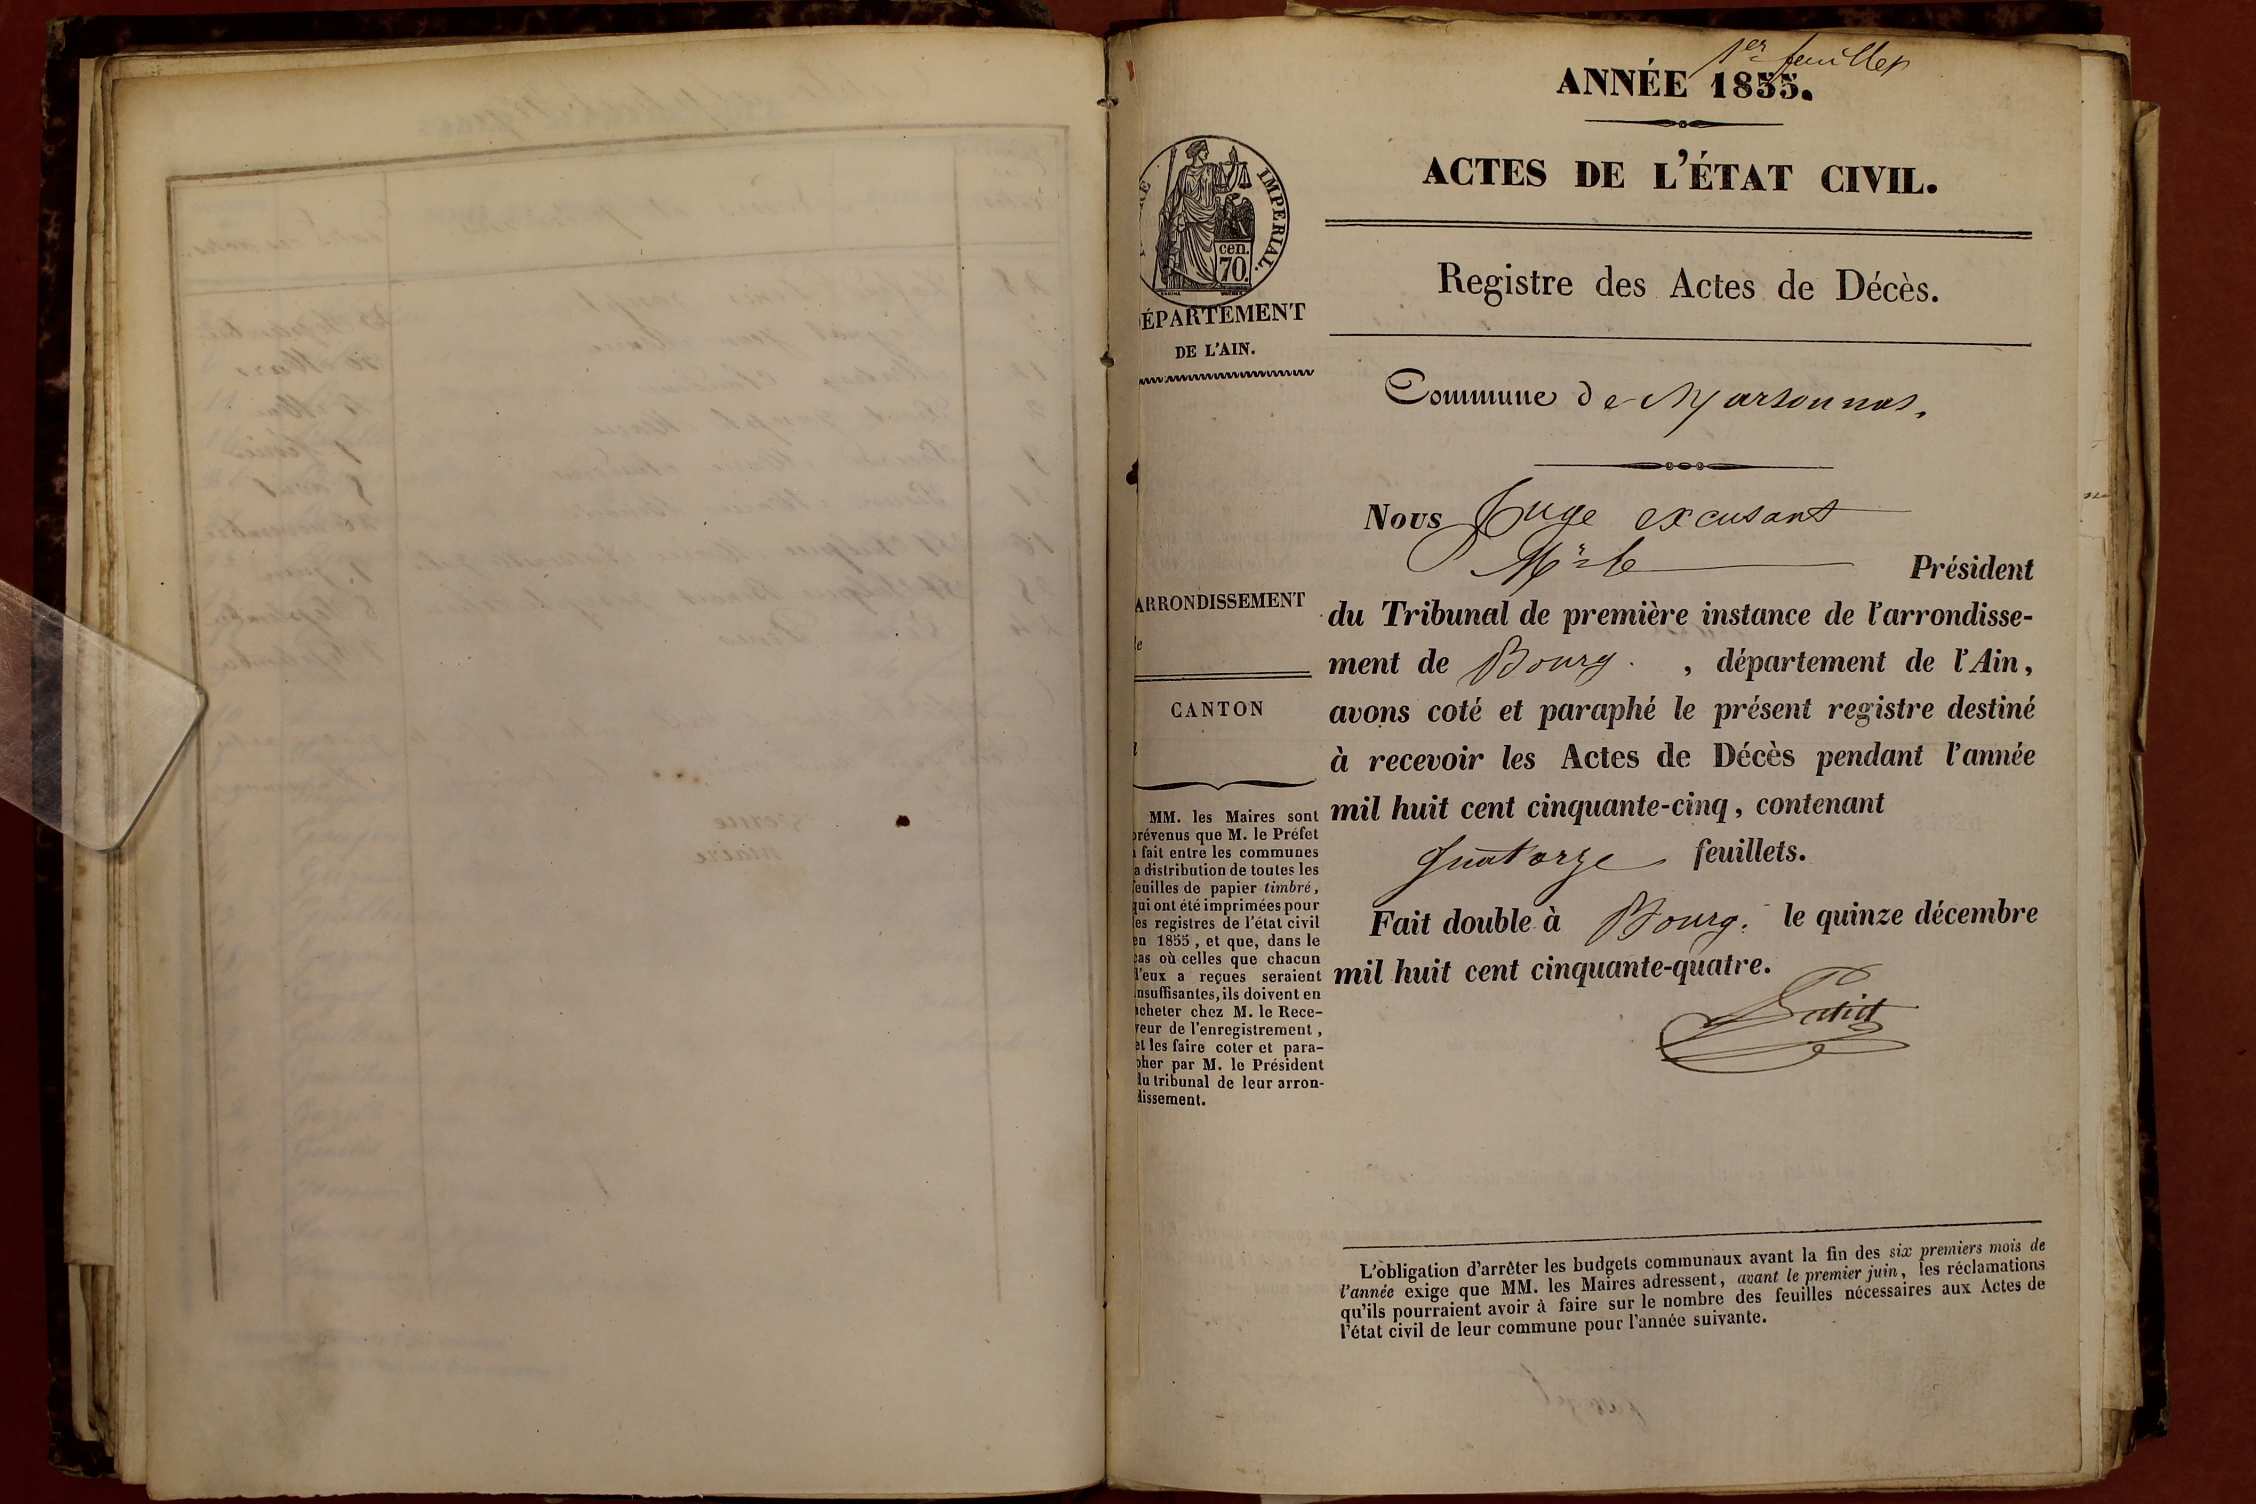 1er feuillet
ANNÉE 1855.
ACTES DE L'ÉTAT CIVIL.
Registre des Actes de Décès.
IMPERIAL.
cen.
70.
ÉPARTEMENT
DE L'AIN.
Commune de Marsonnas.
Nous Juge excusant
Mr le Président
du Tribunal de première instance de l'arrondisse-
ment de Bourg. , département de l'Ain,
avons coté et paraphé le présent registre destiné
à recevoir les Actes de Décès pendant l'année
mil huit cent cinquante-cinq, contenant
quatorze feuillets.
Fait double à Bourg. le quinze décembre
mil huit cent cinquante-quatre.
ARRONDISSEMENT
CANTON
MM. les Maires sont
révenus que M. le Préfet
fait entre les communes
a distribution de toutes les
euilles de papier timbré,
qui ont été imprimées pour
es registres de l'état civil
en 1855, et que, dans le
cas où celles que chacun
d'eux a reçues seraient
insuffisantes, ils doivent en
acheter chez M. le Rece-
veur de l'enregistrement,
et les faire coter et para-
pher par M. le Président
du tribunal de leur arron-
dissement.
L'obligation d'arrêter les budgets communaux avant la fin des six premiers mois de
l'année exige que MM. les Maires adressent, avant le premier juin, les réclamations
qu'ils pourraient avoir à faire sur le nombre des feuilles nécessaires aux Actes de
l'état civil de leur commune pour l'année suivante.